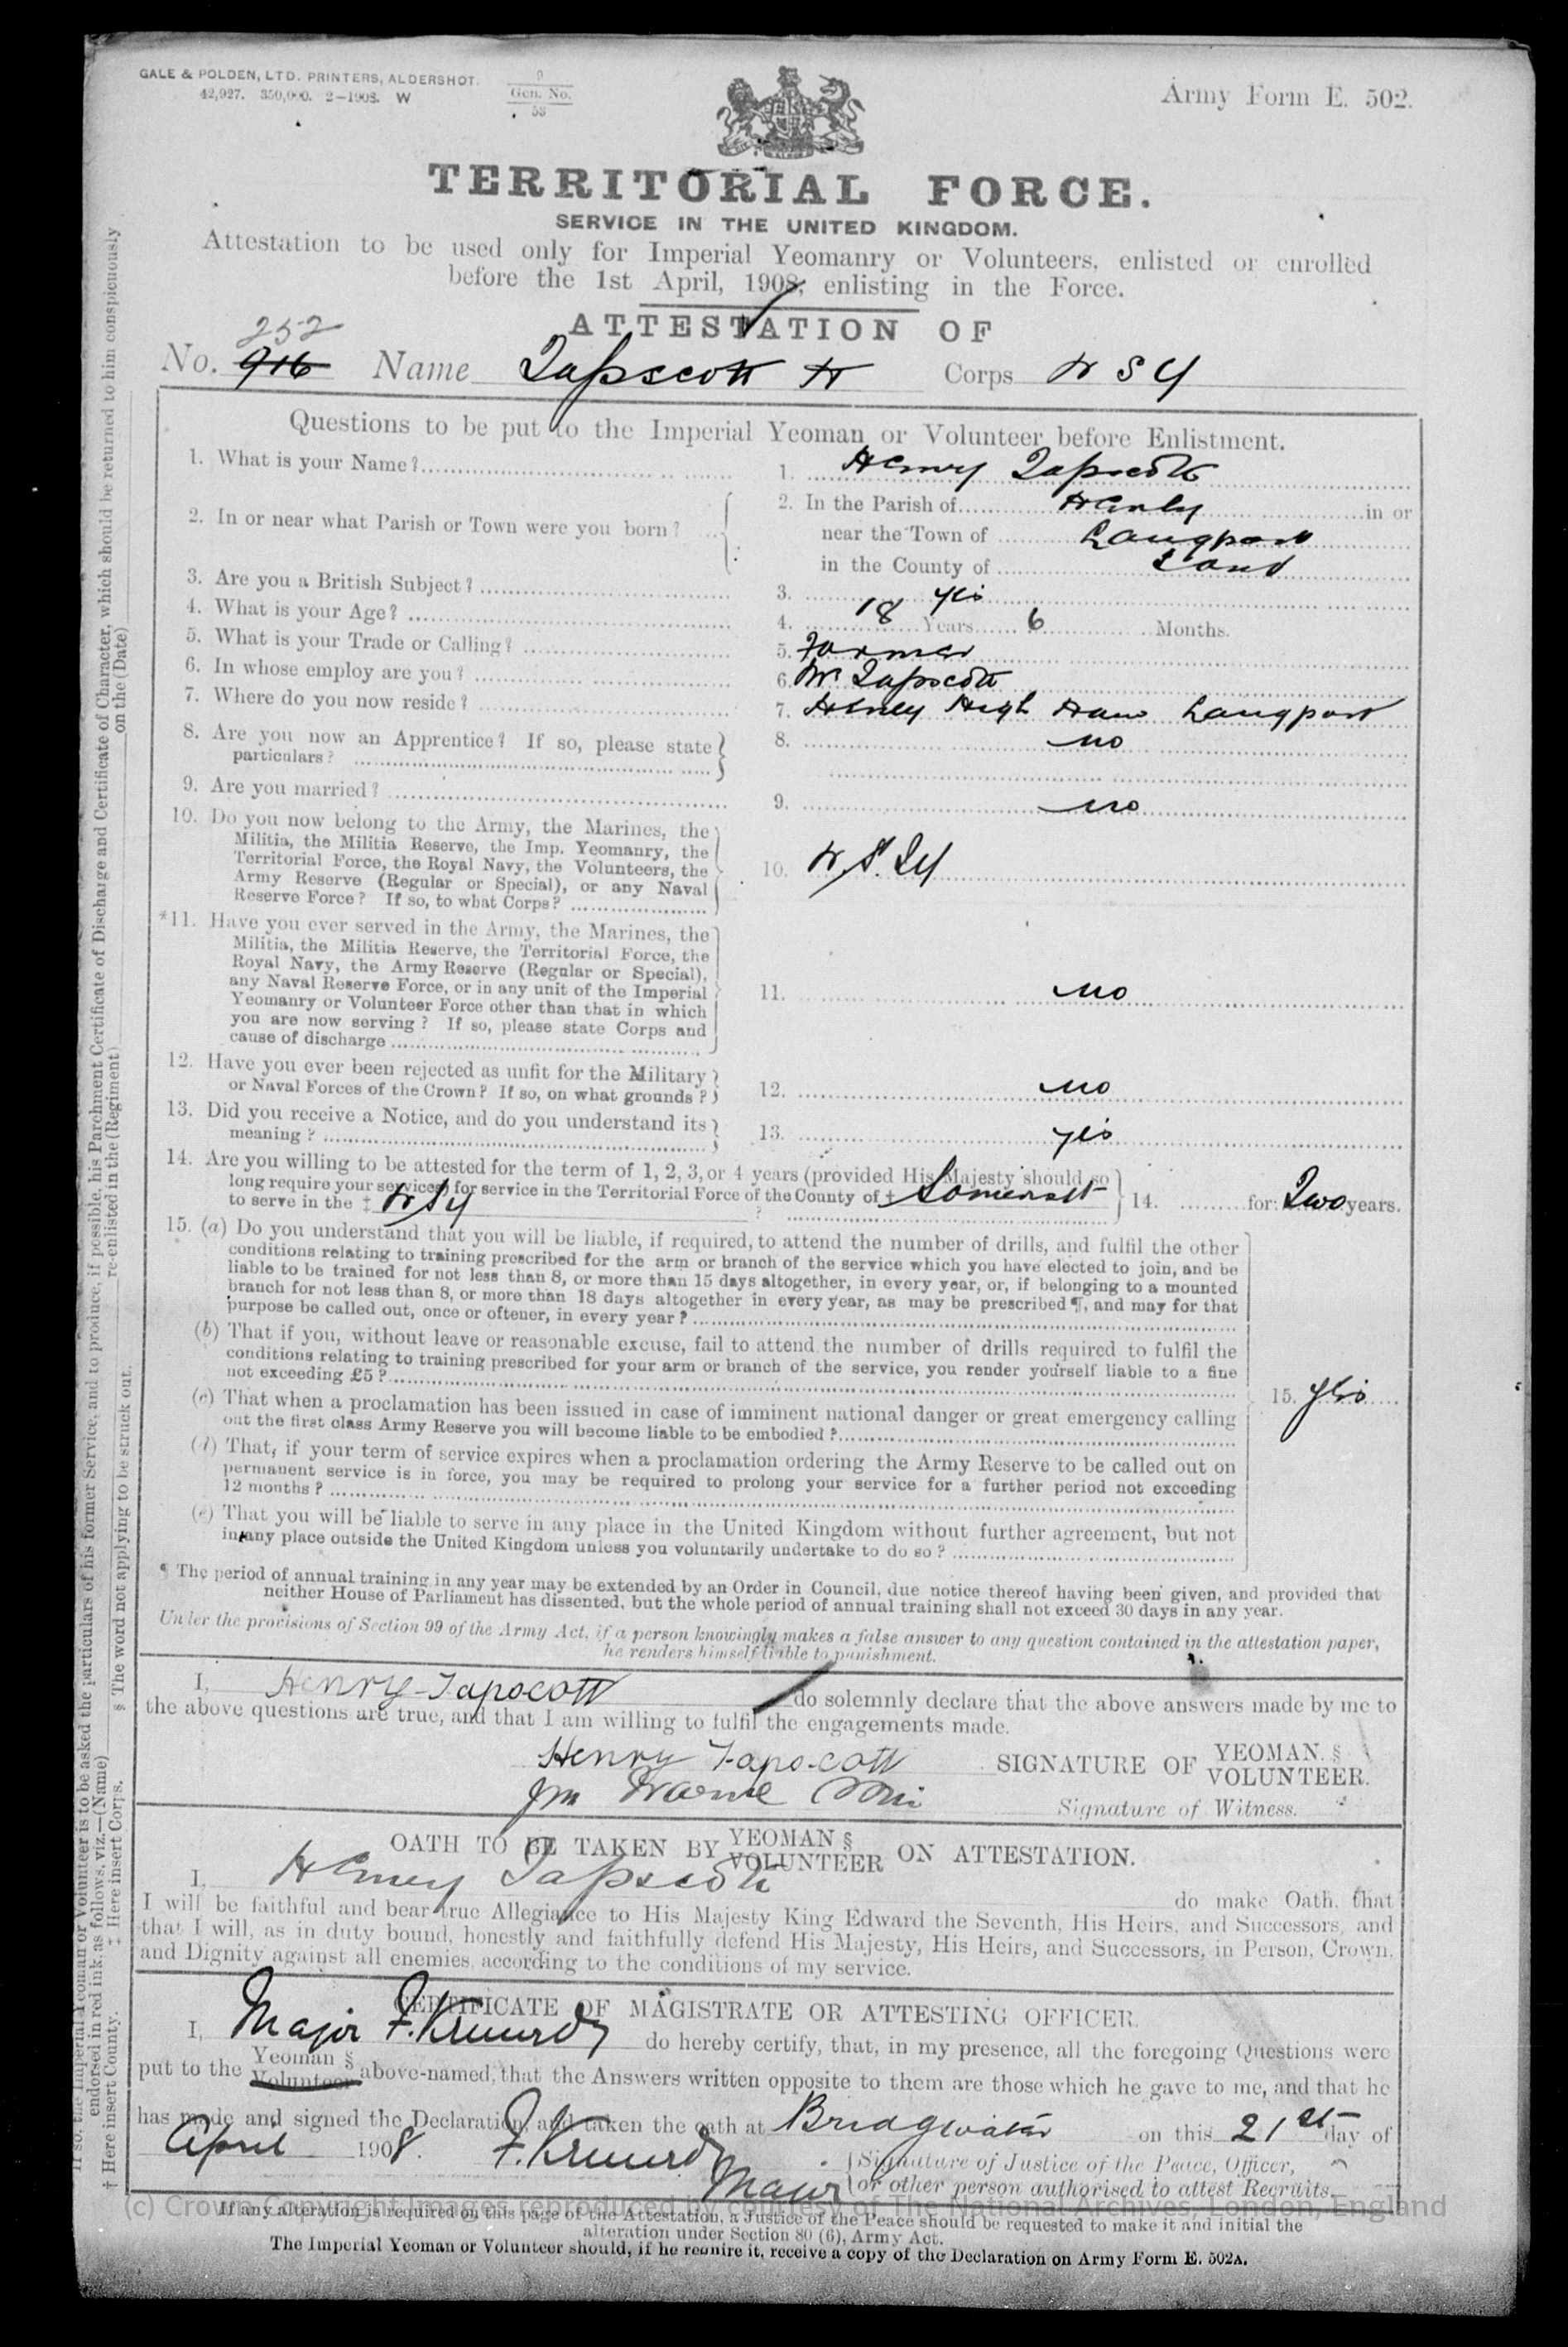 GALE & POLDEN, LTD. PRINTERS, ALDERSHOT.
42,927. 350,000. 2–1908. W
9
Gen. No.
53
Army Form E. 502.
TERRITORIAL FORCE.
SERVICE IN THE UNITED KINGDOM.
Attestation to be used only for Imperial Yeomanry or Volunteers, enlisted or enrolled
before the 1st April, 1908, enlisting in the Force.
ATTESTATION OF
252
No. 916 Name Tapscott H Corps W S Y
Questions to be put to the Imperial Yeoman or Volunteer before Enlistment.
1. What is your Name? 1. Henry Tapscott
2. In or near what Parish or Town were you born? 2. In the Parish of Henly in or
near the Town of Langport
in the County of
3. Are you a British Subject? 3. yes
4. What is your Age? 4. 18 Years 6 Months.
5. What is your Trade or Calling? 5. Farmer
6. In whose employ are you? 6. Tapscott
7. Where do you now reside? 7. Henley High Ham Langport
8. Are you now an Apprentice? If so, please state particulars? 8. no
9. Are you married? 9. no
10. Do you now belong to the Army, the Marines, the
Militia, the Militia Reserve, the Imp. Yeomanry, the
Territorial Force, the Royal Navy, the Volunteers, the
Army Reserve (Regular or Special), or any Naval
Reserve Force? If so, to what Corps? 10. W. S. I Y
*11. Have you ever served in the Army, the Marines, the
Militia, the Militia Reserve, the Territorial Force, the
Royal Navy, the Army Reserve (Regular or Special),
any Naval Reserve Force, or in any unit of the Imperial
Yeomanry or Volunteer Force other than that in which
you are now serving? If so, please state Corps and
cause of discharge 11. no
12. Have you ever been rejected as unfit for the Military
or Naval Forces of the Crown? If so, on what grounds? 12. no
13. Did you receive a Notice, and do you understand its
meaning? 13. yes
14. Are you willing to be attested for the term of 1, 2, 3, or 4 years (provided His Majesty should so
long require your services) for service in the Territorial Force of the County of † Somerset
to serve in the ‡ W S Y ? 14. for Two years.
15. (a) Do you understand that you will be liable, if required, to attend the number of drills, and fulfil the other
conditions relating to training prescribed for the arm or branch of the service which you have elected to join, and be
liable to be trained for not less than 8, or more than 15 days altogether, in every year, or, if belonging to a mounted
branch for not less than 8, or more than 18 days altogether in every year, as may be prescribed ¶, and may for that
purpose be called out, once or oftener, in every year?
(b) That if you, without leave or reasonable excuse, fail to attend the number of drills required to fulfil the
conditions relating to training prescribed for your arm or branch of the service, you render yourself liable to a fine
not exceeding £5?
(c) That when a proclamation has been issued in case of imminent national danger or great emergency calling
out the first class Army Reserve you will become liable to be embodied?
15. yes
(d) That, if your term of service expires when a proclamation ordering the Army Reserve to be called out on
permanent service is in force, you may be required to prolong your service for a further period not exceeding
12 months?
(e) That you will be liable to serve in any place in the United Kingdom without further agreement, but not
in any place outside the United Kingdom unless you voluntarily undertake to do so?
¶ The period of annual training in any year may be extended by an Order in Council, due notice thereof having been given, and provided that
neither House of Parliament has dissented, but the whole period of annual training shall not exceed 30 days in any year.
Under the provisions of Section 99 of the Army Act, if a person knowingly makes a false answer to any question contained in the attestation paper,
he renders himself liable to punishment.
I, Henry Tapscott do solemnly declare that the above answers made by me to
the above questions are true, and that I am willing to fulfil the engagements made.
Henry Tapscott SIGNATURE OF YEOMAN. § VOLUNTEER.
Signature of Witness.
OATH TO BE TAKEN BY YEOMAN § VOLUNTEER ON ATTESTATION.
I, Henry Tapscott do make Oath, that
I will be faithful and bear true Allegiance to His Majesty King Edward the Seventh, His Heirs, and Successors, and
that I will, as in duty bound, honestly and faithfully defend His Majesty, His Heirs, and Successors, in Person, Crown,
and Dignity against all enemies, according to the conditions of my service.
CERTIFICATE OF MAGISTRATE OR ATTESTING OFFICER.
I, Major F. do hereby certify, that, in my presence, all the foregoing Questions were
put to the Yeoman § Volunteer above-named, that the Answers written opposite to them are those which he gave to me, and that he
has made and signed the Declaration, and taken the oath at Bridgwater on this 21st day of
April 1908. F. Major
Signature of Justice of the Peace, Officer,
or other person authorised to attest Recruits.
(c) Crown Copyright Images reproduced by courtesy of The National Archives, London, England
If any alteration is required on this page of the Attestation, a Justice of the Peace should be requested to make it and initial the
alteration under Section 80 (6), Army Act.
The Imperial Yeoman or Volunteer should, if he require it, receive a copy of the Declaration on Army Form E. 502A.
If so, the Imperial Yeoman or Volunteer is to be asked the particulars of his former Service, and to produce, if possible, his Parchment Certificate of Discharge and Certificate of Character, which should be returned to him conspicuously
endorsed in red ink, as follows, viz.—(Name) re-enlisted in the (Regiment) on the (Date)
† Here insert County. ‡ Here insert Corps. § The word not applying to be struck out.